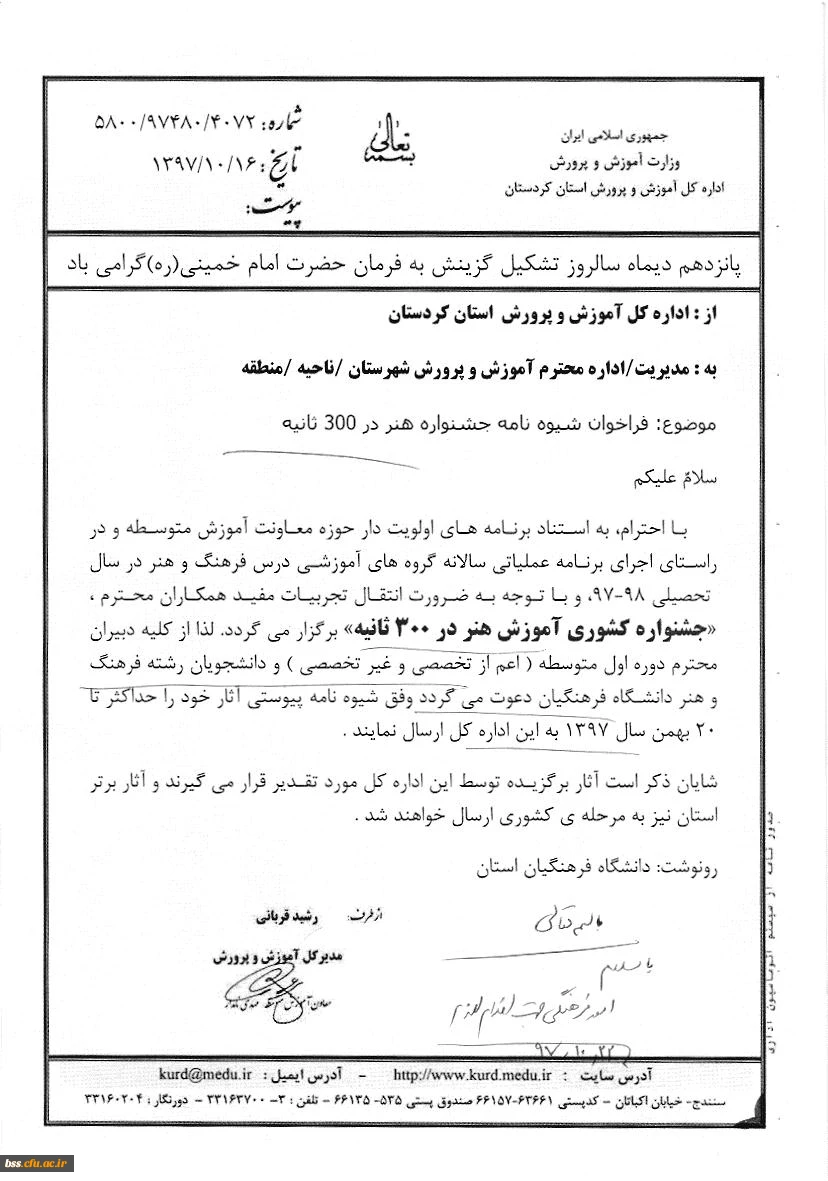 جمهوری اسلامی ایران
وزارت آموزش و پرورش
اداره کل آموزش و پرورش استان کردستان
بسمه تعالی
شماره: ۵۸۰۰/۹۷۴۸۰/۴۰۷۲
تاریخ: ۱۳۹۷/۱۰/۱۶
پیوست:
پانزدهم دیماه سالروز تشکیل گزینش به فرمان حضرت امام خمینی(ره)گرامی باد
از : اداره کل آموزش و پرورش استان کردستان
به : مدیریت/اداره محترم آموزش و پرورش شهرستان /ناحیه /منطقه
موضوع: فراخوان شیوه نامه جشنواره هنر در 300 ثانیه
سلامٌ علیکم
با احترام، به استناد برنامه های اولویت دار حوزه معاونت آموزش متوسطه و در
راستای اجرای برنامه عملیاتی سالانه گروه های آموزشی درس فرهنگ و هنر در سال
تحصیلی ۹۸-۹۷، و با توجه به ضرورت انتقال تجربیات مفید همکاران محترم ،
«جشنواره کشوری آموزش هنر در ۳۰۰ ثانیه» برگزار می گردد. لذا از کلیه دبیران
محترم دوره اول متوسطه ( اعم از تخصصی و غیر تخصصی ) و دانشجویان رشته فرهنگ
و هنر دانشگاه فرهنگیان دعوت می گردد وفق شیوه نامه پیوستی آثار خود را حداکثر تا
۲۰ بهمن سال ۱۳۹۷ به این اداره کل ارسال نمایند .
شایان ذکر است آثار برگزیده توسط این اداره کل مورد تقدیر قرار می گیرند و آثار برتر
استان نیز به مرحله ی کشوری ارسال خواهند شد .
رونوشت: دانشگاه فرهنگیان استان
ازطرف: رشید قربانی
مدیرکل آموزش و پرورش
معاون آموزش متوسطه مهدی نامدار
باسمه تعالی
با سلام
امور فرهنگی جهت اقدام لازم
۹۷/۱۰/۲۲
صدور نامه از سیستم اتوماسیون اداری
آدرس سایت : http://www.kurd.medu.ir - آدرس ایمیل : kurd@medu.ir
سنندج- خیابان اکباتان – کدپستی ۶۳۶۶۱-۶۶۱۵۷ صندوق پستی ۵۳۵- ۶۶۱۳۵ – تلفن : ۳- ۳۳۱۶۳۷۰۰ – دورنگار : ۳۳۱۶۰۲۰۴
bss.cfu.ac.ir